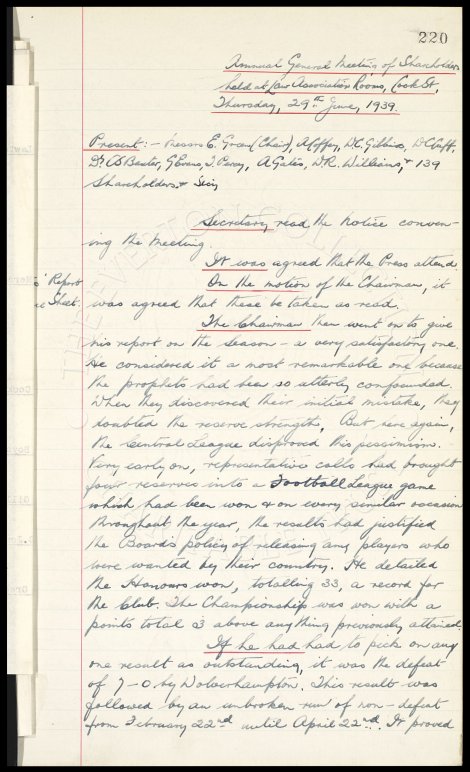 220
Annual General Meeting of Shareholders
held at Law Association Rooms, Cook St,
Thursday, 29th June, 1939.
Present:- Messrs E. Green (Chair), A Coffey, W.C. Gibbins, W C Cuff,
Dr C S Baxter, G Evans, J. Percy, A Gates, W.R. Williams, & 139
Shareholders &
Secretary read the notice conven-
ing the meeting.
It was agreed that the Press attend.
On the motion of the Chairman, it
s' Report
ce Sheet.
was agreed that these be taken as read.
The Chairman then went on to give
his report on the season - a very satisfactory one.
He considered it a most remarkable one because
the prophets had been so utterly confounded.
When they discovered their initial mistake, they
doubted the reserve strengths, But here again,
the Central League disproved this pessimism.
Very early on, representative calls had brought
four reserves into a Football League game
which had been won & on every similar occasion
throughout the year, the results had justified
the Board's policy of releasing any players who
were wanted by their country. He detailed
the Honours won, totalling 33, a record for
the Club. The Championship was won with a
points total 3 above anything previously attained.
If he had had to pick on any
one result as outstanding, it was the defeat
of 7-0 by Wolverhampton. This result was
followed by an unbroken run of non-defeat
from February 22nd until April 22nd. It proved